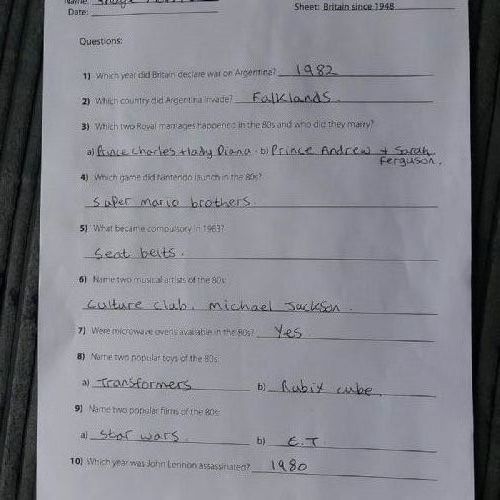 Name:
Date:
Sheet: Britain since 1948
Questions:
1) Which year did Britain declare war on Argentina? 1982
2) Which country did Argentina invade? Falklands.
3) Which two Royal marriages happened in the 80s and who did they marry?
a) Prince Charles + lady Diana. b) Prince Andrew + Sarah
Ferguson.
4) Which game did Nintendo launch in the 80s?
Super mario brothers.
5) What became compulsory in 1983?
Seat belts.
6) Name two musical artists of the 80s:
Culture club, michael Jackson.
7) Were microwave ovens available in the 80s? Yes
8) Name two popular toys of the 80s:
a) Transformers b) Rubix cube.
9) Name two popular films of the 80s:
a) Star wars. b) E.T
10) Which year was John Lennon assassinated? 1980